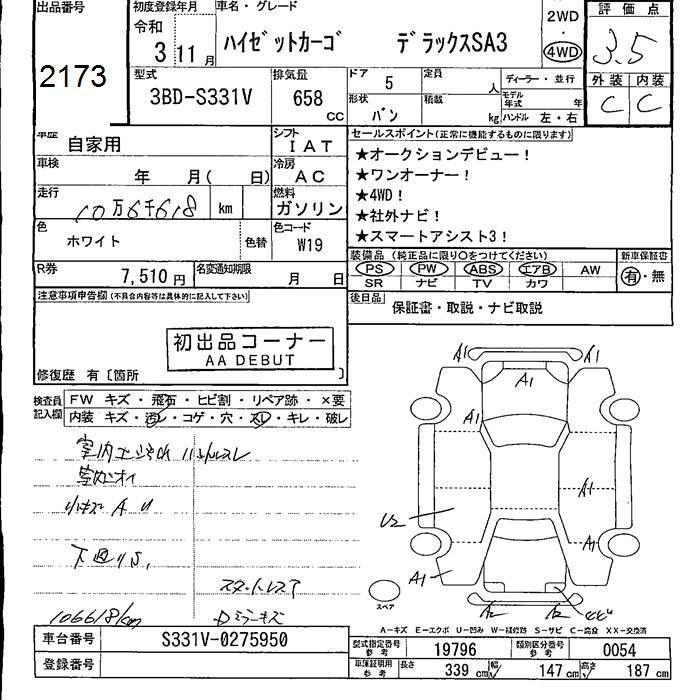 出品番号
2173
初度登録年月
令和
3 11月
車名・グレード
ハイゼットカーゴ デラックスSA3
2WD
・
4WD
評価点
3.5
外装 内装
C C
型式
3BD-S331V
排気量
658
CC
ドア 5
定員 人
形状 バン
積載 kg
ディーラー・並行
モデル年式 年
ハンドル 左・右
車歴 自家用
シフト IAT
車検 年 月( 日)
冷房 AC
走行 10万6千618 km
燃料 ガソリン
色 ホワイト
色替
色コード W19
R券 7,510円
名変通知期限 月 日
セールスポイント(正常に機能するものに限ります)
★オークションデビュー!
★ワンオーナー!
★4WD!
★社外ナビ!
★スマートアシスト3!
装備品(純正品に限り○をつけてください)
新車保証書
PS PW ABS エアB AW
SR ナビ TV カワ
有・無
後日品 保証書・取説・ナビ取説
注意事項申告欄(不具合内容等は具体的に記入して下さい)
初出品コーナー
AA DEBUT
修復歴 有〔箇所 〕
検査員記入欄
FW キズ・飛石・ヒビ割・リペア跡・×要
内装 キズ・汚レ・コゲ・穴・スレ・キレ・破レ
小キズ A U
106618km
A1 A1
A1
A1
A1
U2
A1
A1
スペア
A-キズ E-エクボ U-凹み W-補修跡 S-サビ C-腐食 XX-交換済
車台番号 S331V-0275950
登録番号
型式指定番号 参考 19796
類別区分番号 参考 0054
車庫証明用 参考
長さ 339 cm
幅 147 cm
高さ 187 cm